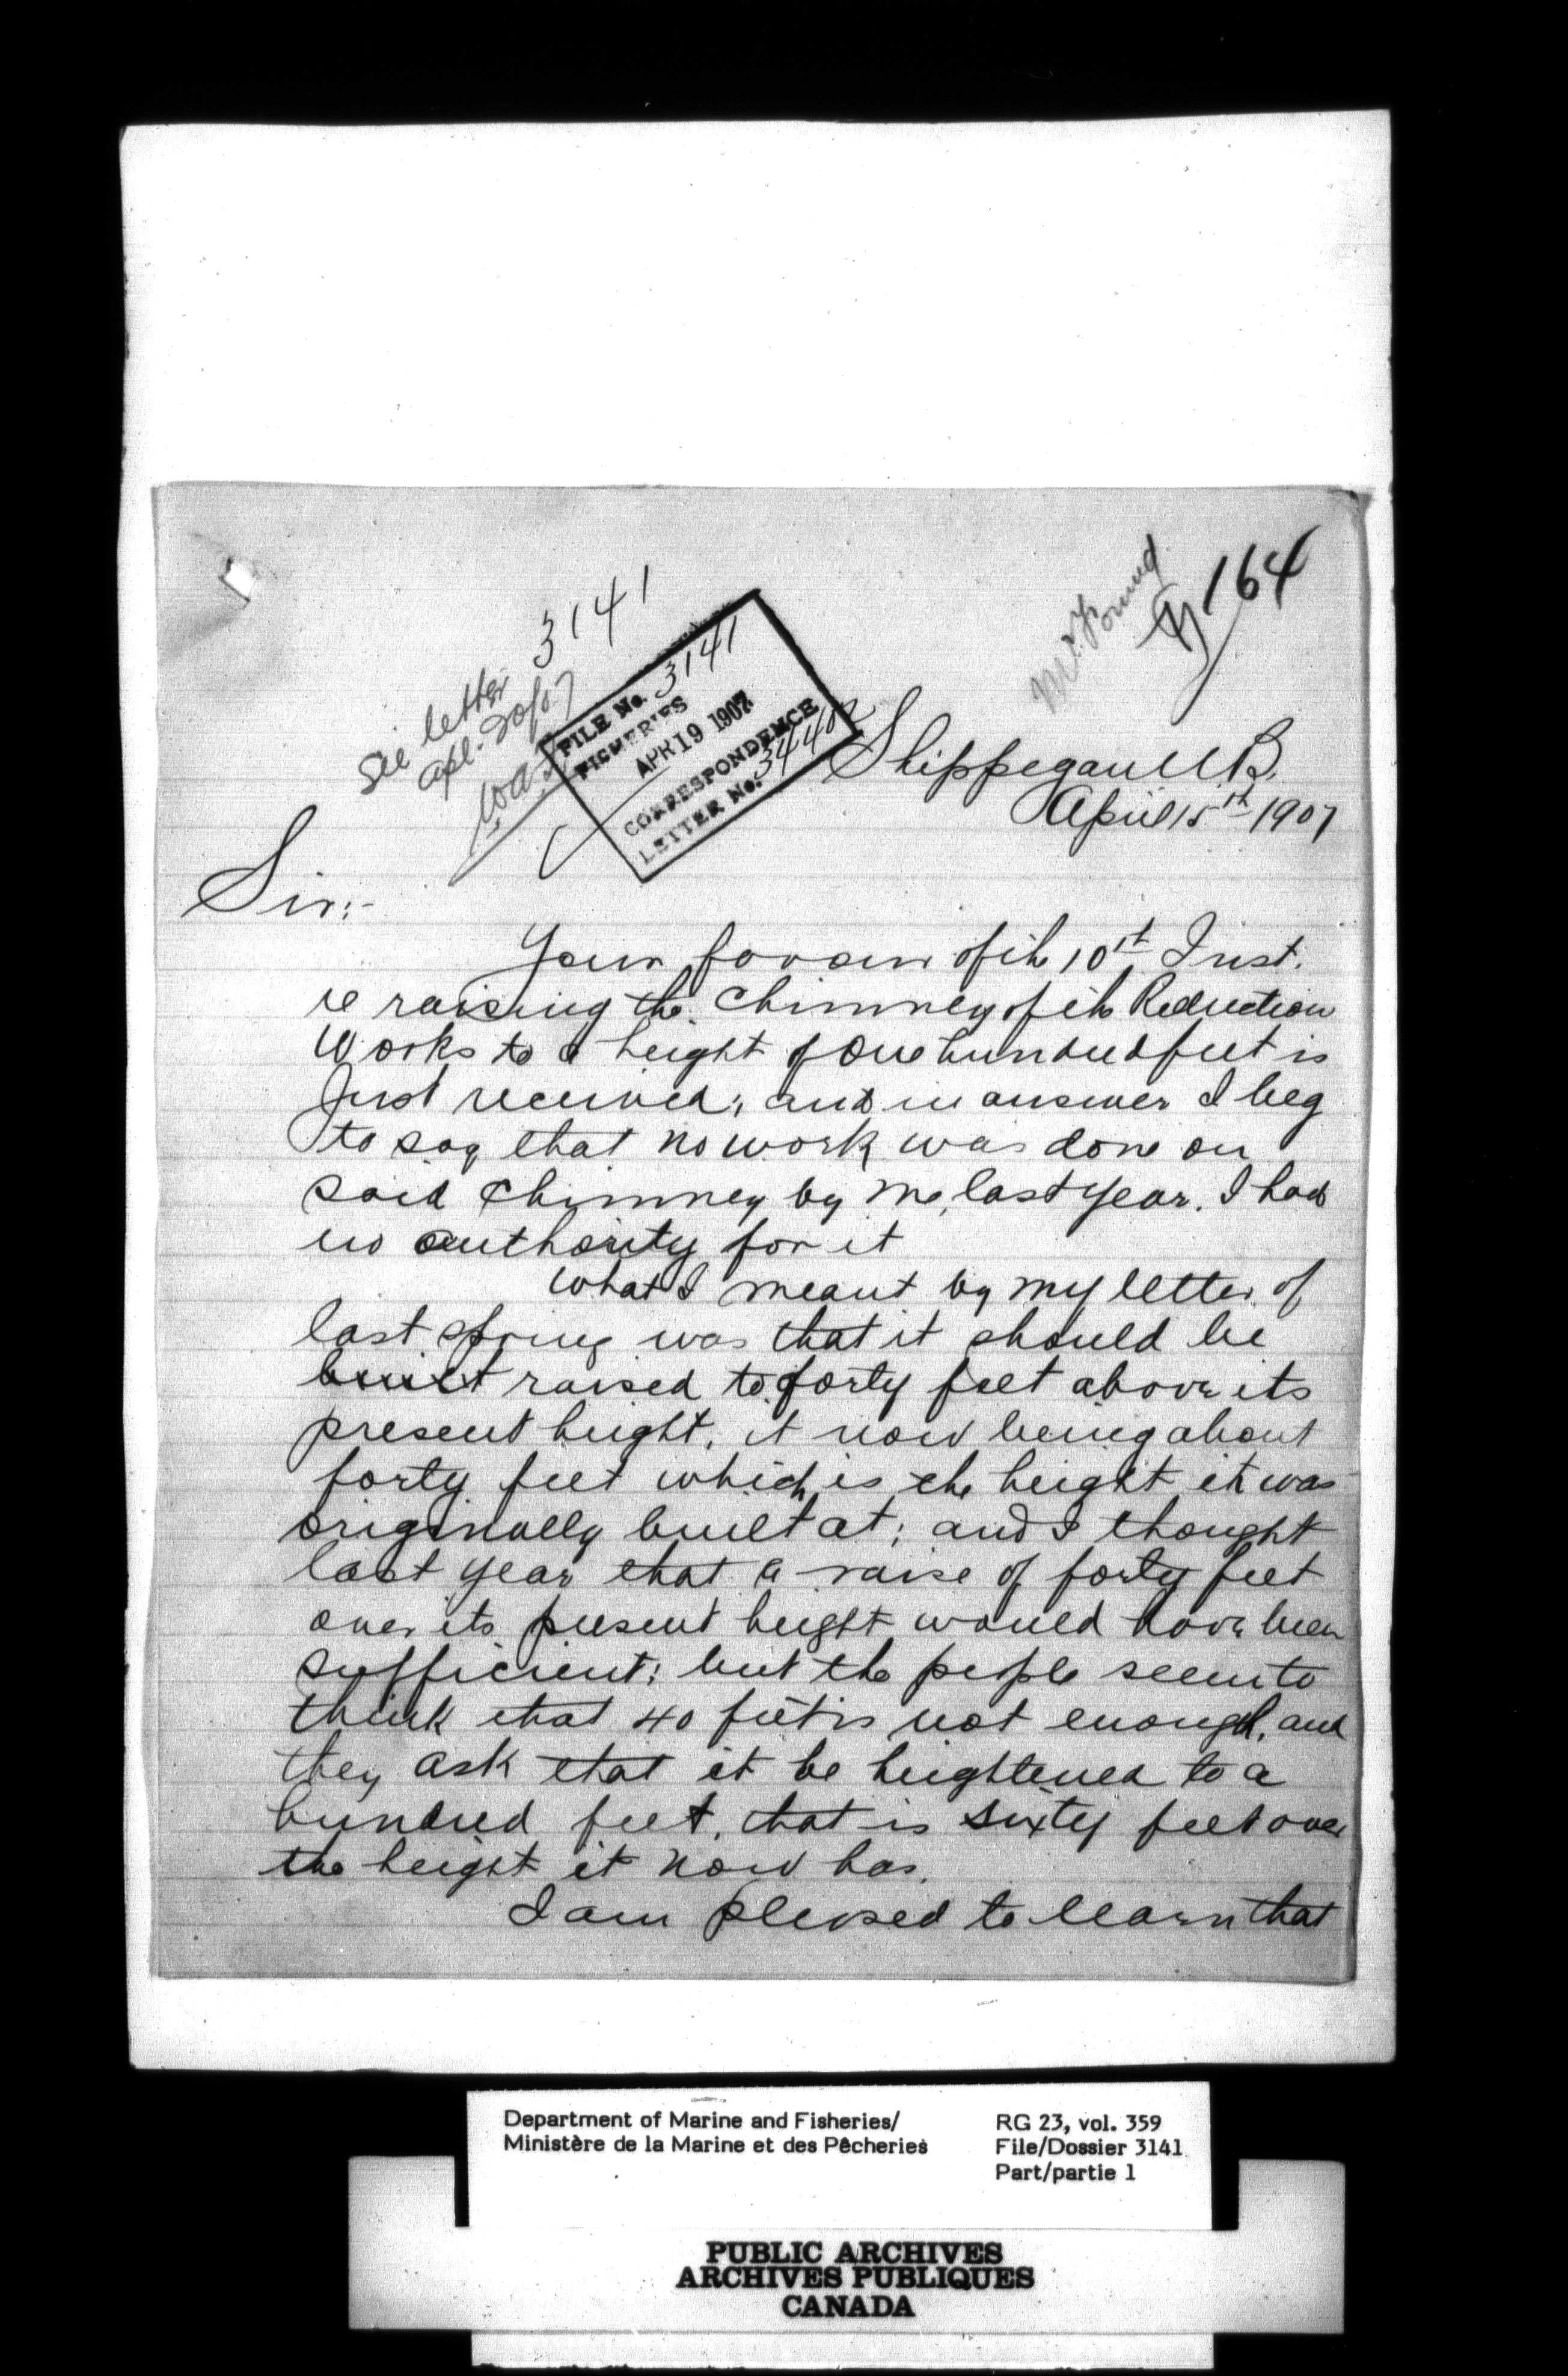 164
Mr. Found
3141
See letter
apl. 20/07
FILE No. 3141
FISHERIES
APR 19 1907
CORRESPONDENCE
LETTER No. 34402
Shippegan N B.
April 15th 1907
Sir:-
Your favour of the 10st Inst.
re raising the Chimney of the Reduction
Works to a height of One hundred feet is
Just received; and in answer I beg
to say that no work was done on
said Chimney by me, last year. I had
no authority for it
What I meant by my letter of
last spring was that it should be
built raised to forty feet above its
present height, it now being about
forty feet which is the height it was
originally built at; and I thought
last year that a raise of forty feet
over its present height would have been
sufficient; but the people seem to
think that 40 feet is not enough, and
they ask that it be heightened to a
hundred feet, that is sixty feet over
the height it now has.
I am pleased to learn that
Department of Marine and Fisheries/
Ministère de la Marine et des Pêcheries
RG 23, vol. 359
File/Dossier 3141
Part/partie 1
PUBLIC ARCHIVES
ARCHIVES PUBLIQUES
CANADA